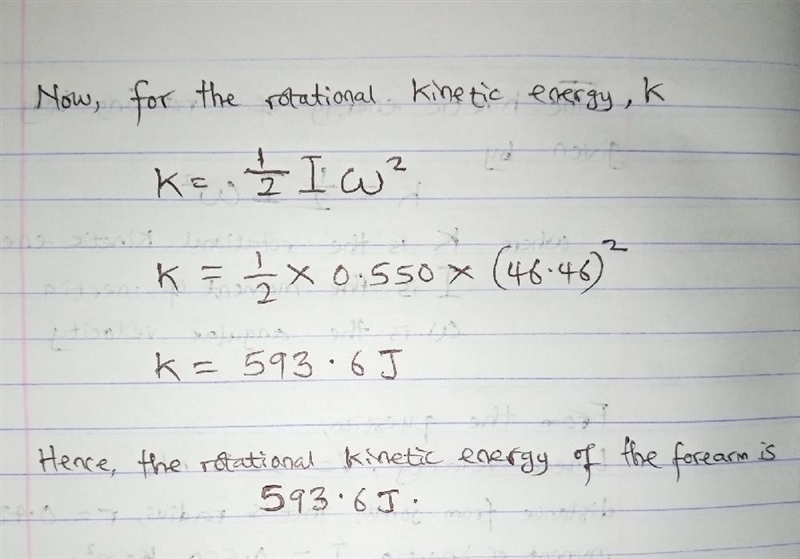 Now, for the rotational kinetic energy, K
K = 1/2 I ω²
K = 1/2 × 0.550 × (46.46)²
K = 593.6 J
Hence, the rotational kinetic energy of the forearm is
593.6 J.